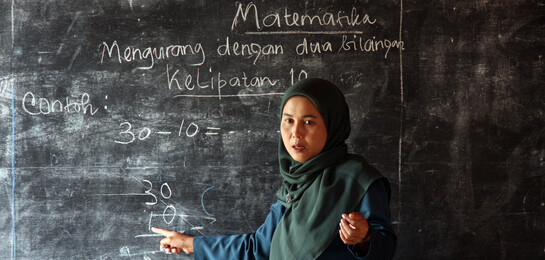 Matematika
Mengurang dengan dua bilangan
Kelipatan 10
Contoh :
30 - 10 = ....
30
10